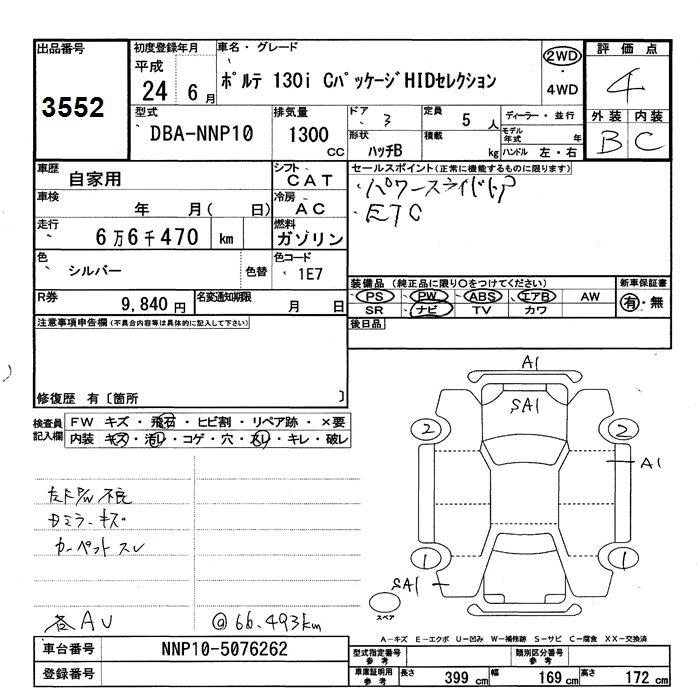 出品番号
3552
初度登録年月
平成
24 6 月
車名・グレード
ポルテ 130i CパッケージHIDセレクション
2WD
・
4WD
評価点
4
型式
DBA-NNP10
排気量
1300
CC
ドア
3
定員
5 人
ディーラー・並行
モデル年式 年
外装 内装
B C
形状
ハッチB
積載
kg
ハンドル 左・右
車歴
自家用
シフト
CAT
セールスポイント(正常に機能するものに限ります)
・パワースライドドア
・ETC
車検
年 月( 日)
冷房
AC
走行
6万6千470 km
燃料
ガソリン
色
シルバー
色替
色コード
1E7
R券
9,840 円
名変通知期限
月 日
装備品 (純正品に限り○をつけてください)
PS PW ABS エアB AW
SR ナビ TV カワ
新車保証書
有・無
注意事項申告欄(不具合内容等は具体的に記入して下さい)
後日品
修復歴 有〔箇所 〕
検査員記入欄
FW キズ・飛石・ヒビ割・リペア跡・×要
内装 キズ・汚レ・コゲ・穴・スレ・キレ・破レ
左FP/W不良
カーペットスレ
各AU
@66.493km
A1
SA1
2 2
A1
1 1
SA1
スペア
A-キズ E-エクボ U-凹み W-補修跡 S-サビ C-腐食 XX-交換済
車台番号
NNP10-5076262
登録番号
型式指定番号
参考
類別区分番号
参考
車庫証明用
参考
長さ 399 cm 幅 169 cm 高さ 172 cm